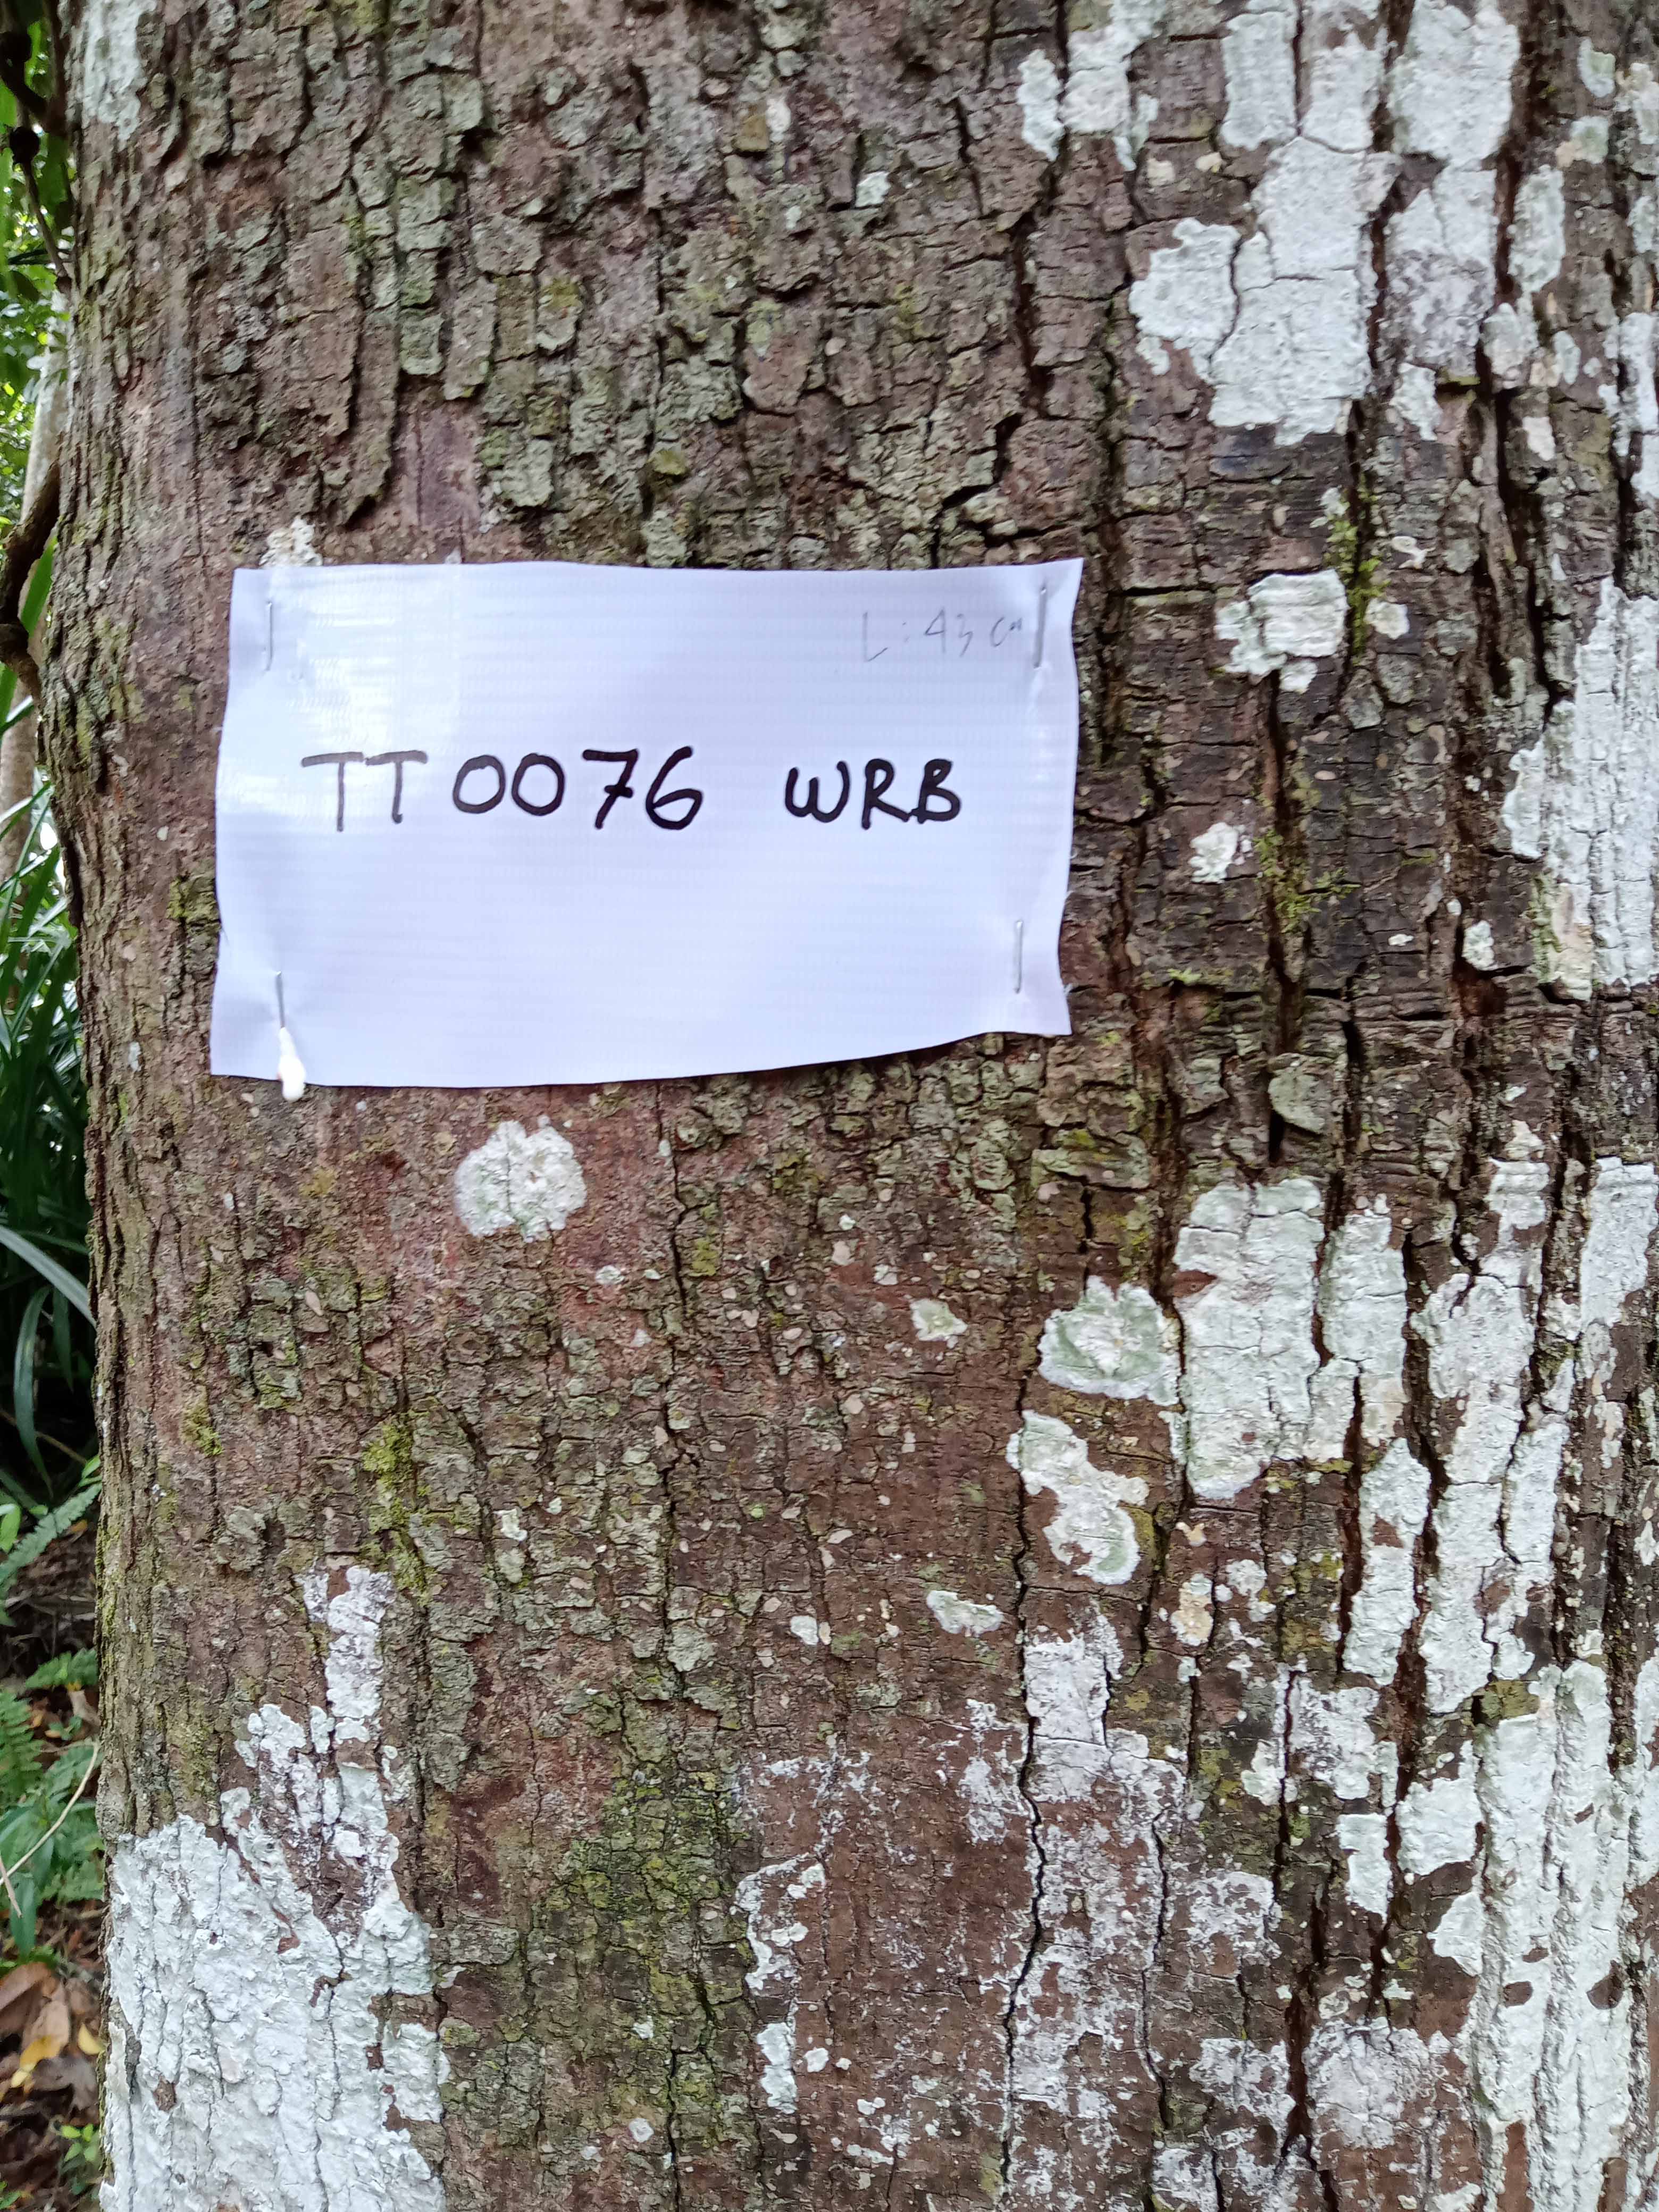 L: 43 cm
TT0076 WRB